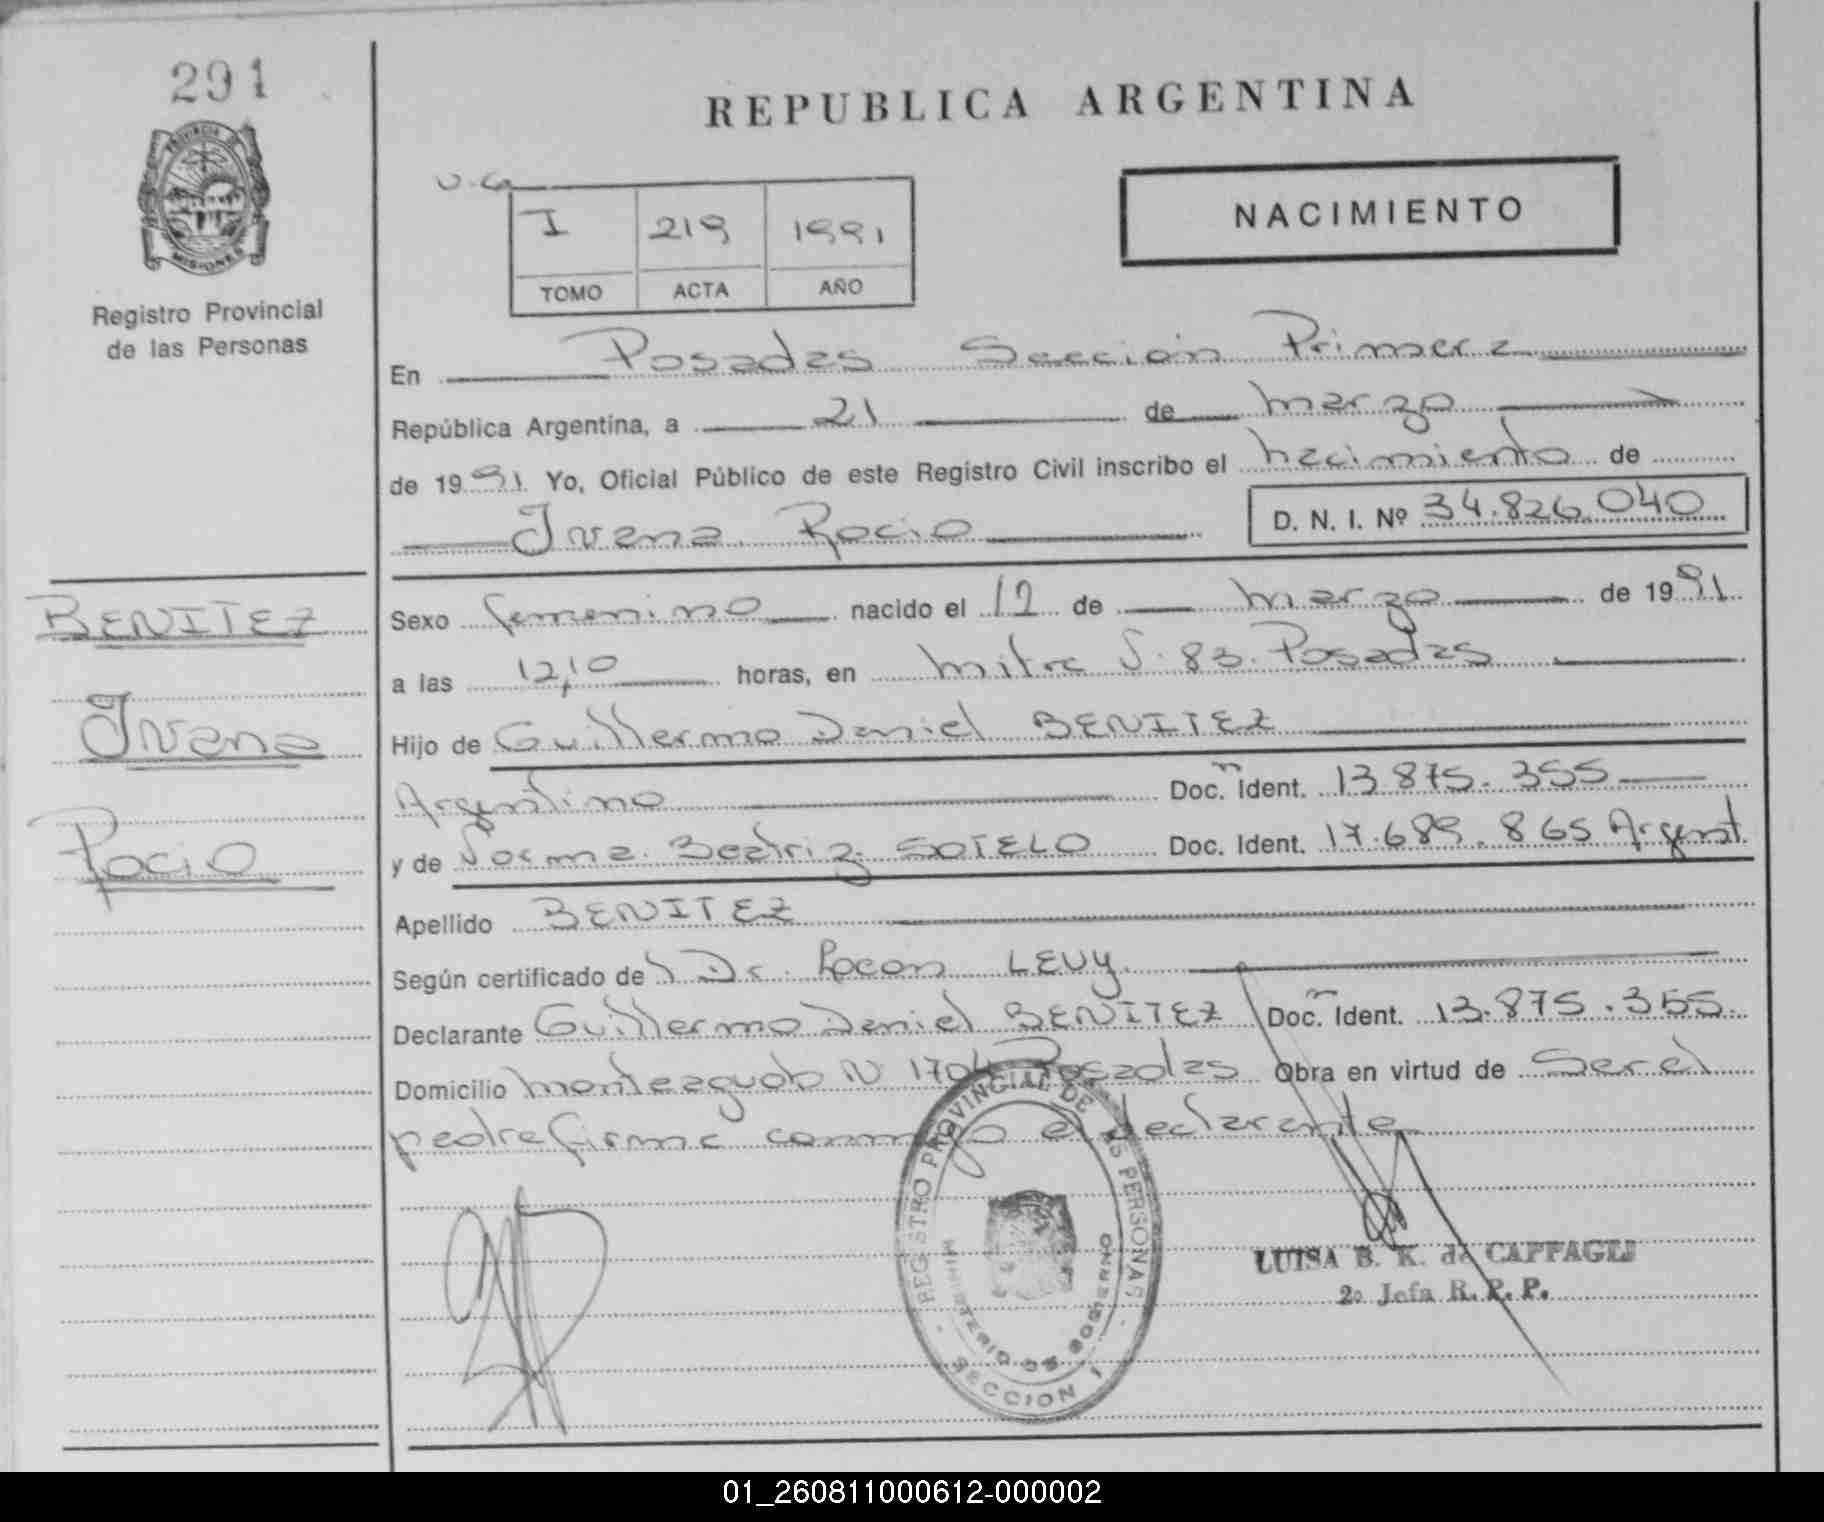 291
PROVINCIA DE
MISIONES
Registro Provincial
de las Personas
REPUBLICA ARGENTINA
NACIMIENTO
I 219 1991
TOMO ACTA AÑO
En Posadas Sección Primera
República Argentina, a 21 de marzo
de 1991 Yo, Oficial Público de este Registro Civil inscribo el nacimiento de
Ivana Rocio D. N. I. Nº 34.826.040
BENITEZ
Ivana
Rocio
Sexo femenino nacido el 12 de marzo de 1991
a las 12,10 horas, en Mitre S. 83. Posadas
Hijo de Guillermo Daniel BENITEZ
Argentino Doc. Ident. 13.875.355
y de Norma Beatriz SOTELO Doc. Ident. 17.689.865 Argent.
Apellido BENITEZ
Según certificado de Dr. LEVY
Declarante Guillermo Daniel BENITEZ Doc. Ident. 13.875.355.
Domicilio Monteagudo N 1704 Posadas Obra en virtud de Ser el
padre firma conmigo el declarante
REGISTRO PROVINCIAL DE LAS PERSONAS
MINISTERIO DE GOBIERNO
SECCION 1
LUISA B. K. de CAFFAGLI
2º Jefa R. P. P.
01_260811000612-000002